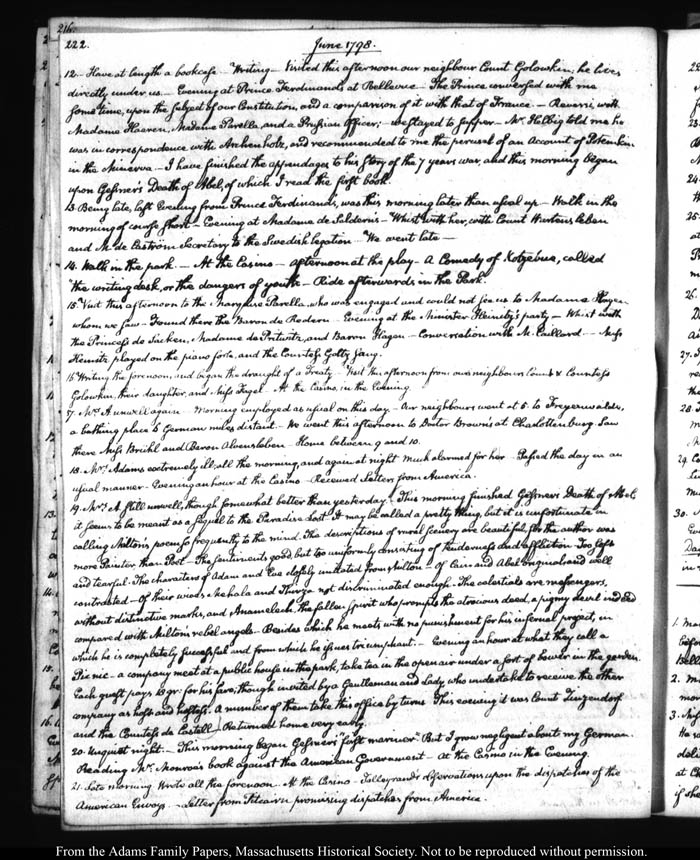 216.
222. June 1798.
12. Have at length a bookcase. Writing. Visited this afternoon our neighbour Count Golowkin; he lives
directly under us. Evening at Prince Ferdinands at Bellevue. The Prince conversed with me
some time, upon the subject of our Constitution, and a comparison of it with that of France. Reversi, with
Madame Haeren, Madame Parella, and a Prussian Officer; we stayed to supper. Mr. Helbig told me he
was in correspondence with Archenholz, and recommended to me the perusal of an Account of Potemkin
in the Minerva. I have finished the appendages to his story of the 7 years war, and this morning began
upon Gessner's Death of Abel, of which I read the first book.
13. Being late, last Evening from Prince Ferdinands, was this morning later than usual up. Walk in the
morning of course short. Evening at Madame de Solderns. Whist with her, with Count Wartensleben
and M. de Caström Secretary to the Swedish legation. We went late
14. Walk in the park. At the Casino. Afternoon at the play. A Comedy of Kotzebue, called
the writing desk, or the dangers of youth. Ride afterwards in the Park.
15. Visit this afternoon to the Marquise Parella, who was engaged and could not see us to Madame
whom we saw. Found there the Baron de Redern. Evening at the Minister Heinitz's party. Whist with
the Princess de Sacken, Madame de Pritwitz, and Baron Hagen. Conversation with M. Caillard. Miss
Heinitz played on the piano forte, and the Countess Goltz sang.
16 Writing the forenoon, and began the draught of a Treaty. Visit this afternoon from our neighbours Count & Countess
Golowkin, their daughter, and Miss Fizel. At the Casino, in the Evening.
17. Mrs. A unwell again. Morning employed as usual on this day. Our neighbours went at 5. to Freyenwalde,
a bathing place 5 German miles distant. We went this afternoon to Doctor Brown's at Charlottenburg. Saw
there Miss Brühl and Baron Alvensleben. Home between 9 and 10.
18. Mrs. Adams extremely ill, all the morning, and again at night. Much alarmed for her. Passed the day in an
usual manner. Evening an hour at the Casino. Received Letters from America.
19. Mrs. A. still unwell, though somewhat better than yesterday. This morning finished Gessner's Death of Abel;
it seems to be meant as a sequel to the Paradise Lost. It may be called a pretty thing, but it is unfortunate in
calling Milton's poem so frequently to the mind. The descriptions of rural scenery are beautiful, for the author was
more Painter, than Poet. The sentiments good, but too uniformly consisting of tenderness and affliction. Too soft
and tearful. The characters of Adam and Eve closely imitated from Milton. Of Cain and Abel original and well
contrasted. Of their wives Mehala and Thirza not discriminated enough. The celestials are messengers,
without distinctive marks, and Anamelech, the fallen spirit who prompts the atrocious deed, a pigmy devil indeed
compared with Milton's rebel angels. Besides which he meets with no punishment for his infernal project, in
which he is completely successful and from which he issues triumphant. Evening an hour at what they call a
Picnic. a company meet at a public house in the park, take tea in the open air under a sort of bower in the garden.
Each guest pays 10 gr. for his fare; though invited by a Gentleman and Lady who undertake to receive the other
company as host and hostess. A number of them take this office by turns. This evening it was Count Zinzendorf
and the Countess de Castell. Returned home very early.
20. Unquiet night. This morning began Gessner's "first mariner" But I grow negligent about my German.
Reading Mr. Monroe's book against the American Government. At the Casino in the Evening.
21. Late morning. Wrote all the forenoon. At the Casino. Talleyrand's observations upon the dispatches of the
American Envoys. Letter from Pitcairn promising dispatches from America.
From the Adams Family Papers, Massachusetts Historical Society. Not to be reproduced without permission.